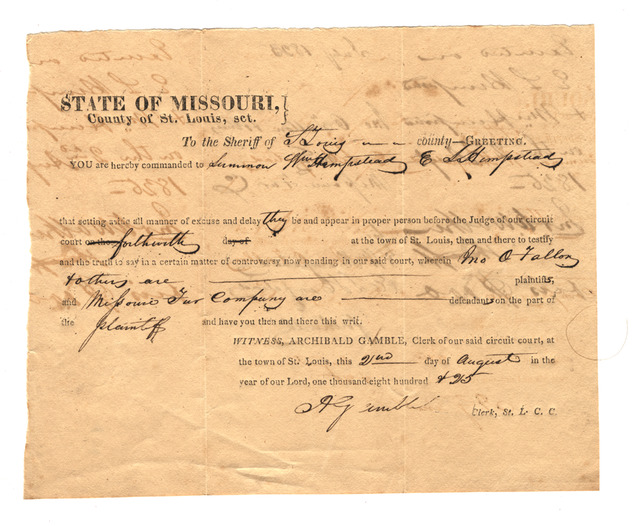 STATE OF MISSOURI,
County of St. Louis, sct.
To the Sheriff of St Louis county—GREETING.
YOU are hereby commanded to Summon Wm Hempstead E L Hempstead
that setting aside all manner of excuse and delay they be and appear in proper person before the Judge of our circuit
court on the forthwith day of at the town of St. Louis, then and there to testify
and the truth to say in a certain matter of controversy now pending in our said court, wherein Jno O Fallon
& others are plaintiffs,
and Missouri Fur Company are defendants on the part of
the plaintiff and have you then and there this writ.
WITNESS, ARCHIBALD GAMBLE, Clerk of our said circuit court, at
the town of St. Louis, this 2nd day of August in the
year of our Lord, one thousand eight hundred & 25
A Gamble Clerk, St. L. C. C.